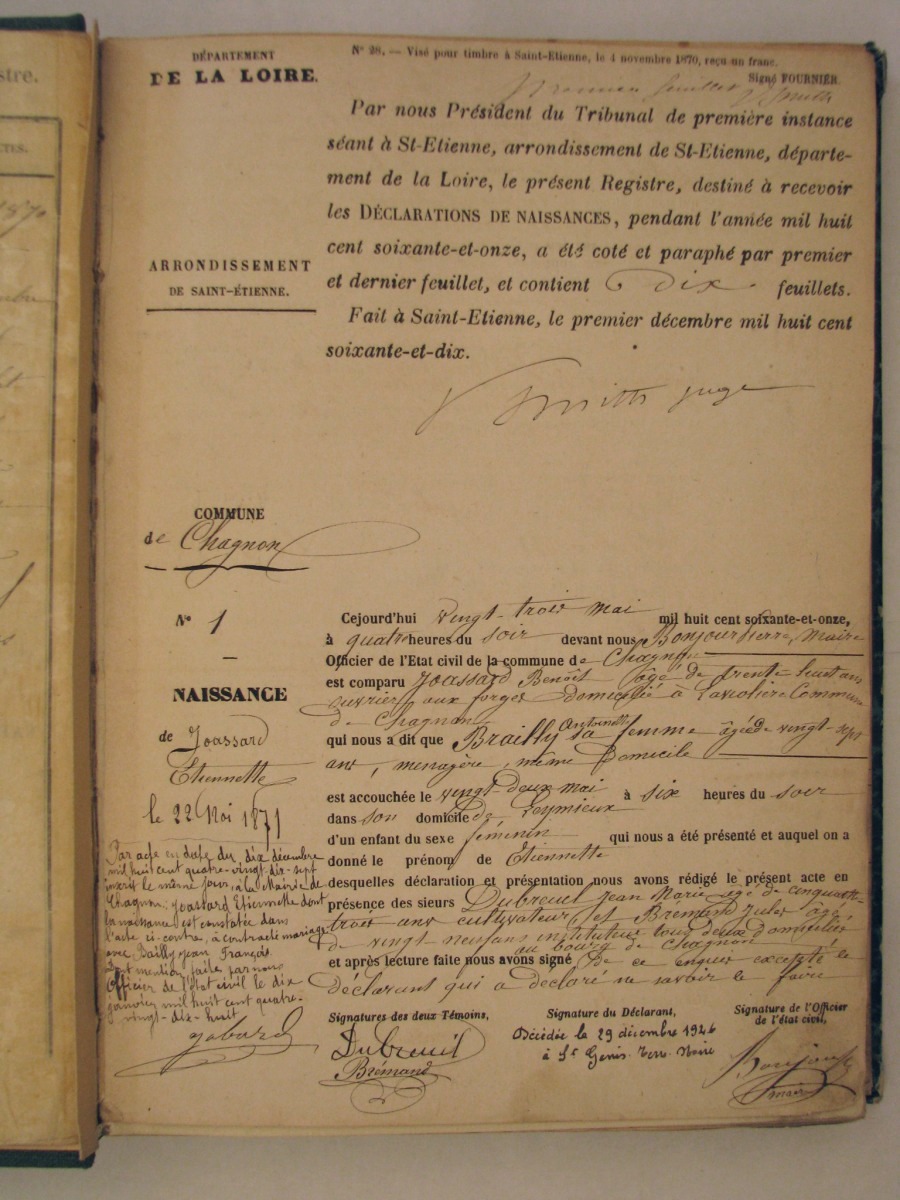 stre.
CTES.
1870
DÉPARTEMENT
DE LA LOIRE.
N° 28. — Visé pour timbre à Saint-Etienne, le 4 novembre 1870, reçu un franc.
Signé FOURNIER.
Premier feuillet Smith
Par nous Président du Tribunal de première instance
séant à St-Etienne, arrondissement de St-Etienne, départe-
ment de la Loire, le présent Registre, destiné à recevoir
les DÉCLARATIONS DE NAISSANCES, pendant l'année mil huit
cent soixante-et-onze, a été coté et paraphé par premier
et dernier feuillet, et contient dix feuillets.
Fait à Saint-Etienne, le premier décembre mil huit cent
soixante-et-dix.
ARRONDISSEMENT
DE SAINT-ÉTIENNE.
Smith juge
COMMUNE
de Chagnon
N° 1
NAISSANCE
de Joassard
Etiennette
le 22 Mai 1871
Cejourd'hui vingt-trois mai mil huit cent soixante-et-onze,
à quatre heures du soir devant nous Bonjour Pierre, Maire
Officier de l'Etat civil de la commune de Chagnon
est comparu Joassard Benoît âgé de trente huit ans
ouvrier aux forges domicilié à Commune
de Chagnon
qui nous a dit que Brailly Antoinette sa femme âgée de vingt-sept
ans, menagère, même domicile
est accouchée le vingt-deux mai à six heures du soir
dans son domicile de Leymieux
d'un enfant du sexe féminin qui nous a été présenté et auquel on a
donné le prénom de Etiennette
desquelles déclaration et présentation nous avons rédigé le présent acte en
présence des sieurs Dubreuil Jean Marie âgé de cinquante-
trois ans cultivateur et Bremand Jules âgé
de vingt-neuf ans instituteur tous deux domiciliés
au bourg de Chagnon
et après lecture faite nous avons signé De ce enquis excepté le
déclarant qui a déclaré ne savoir le faire
Par acte en date du dix décembre
mil huit cent quatre-vingt-dix-sept
inscrit le même jour, à la Mairie de
Chagnon, Joassard Etiennette dont
la naissance est constatée dans
l'acte ci-contre, à contracté mariage
avec Bailly Jean François
Dont mention faite par nous
Officier de l'état civil le dix
janvier mil huit cent quatre-
vingt-dix-huit
Signatures des deux Témoins,
Signature du Déclarant,
Signature de l'Officier
de l'état civil,
Dubreuil
Brémand
Décédée le 29 décembre 1946
à St Genis-Terre-Noire
Bonjour
maire